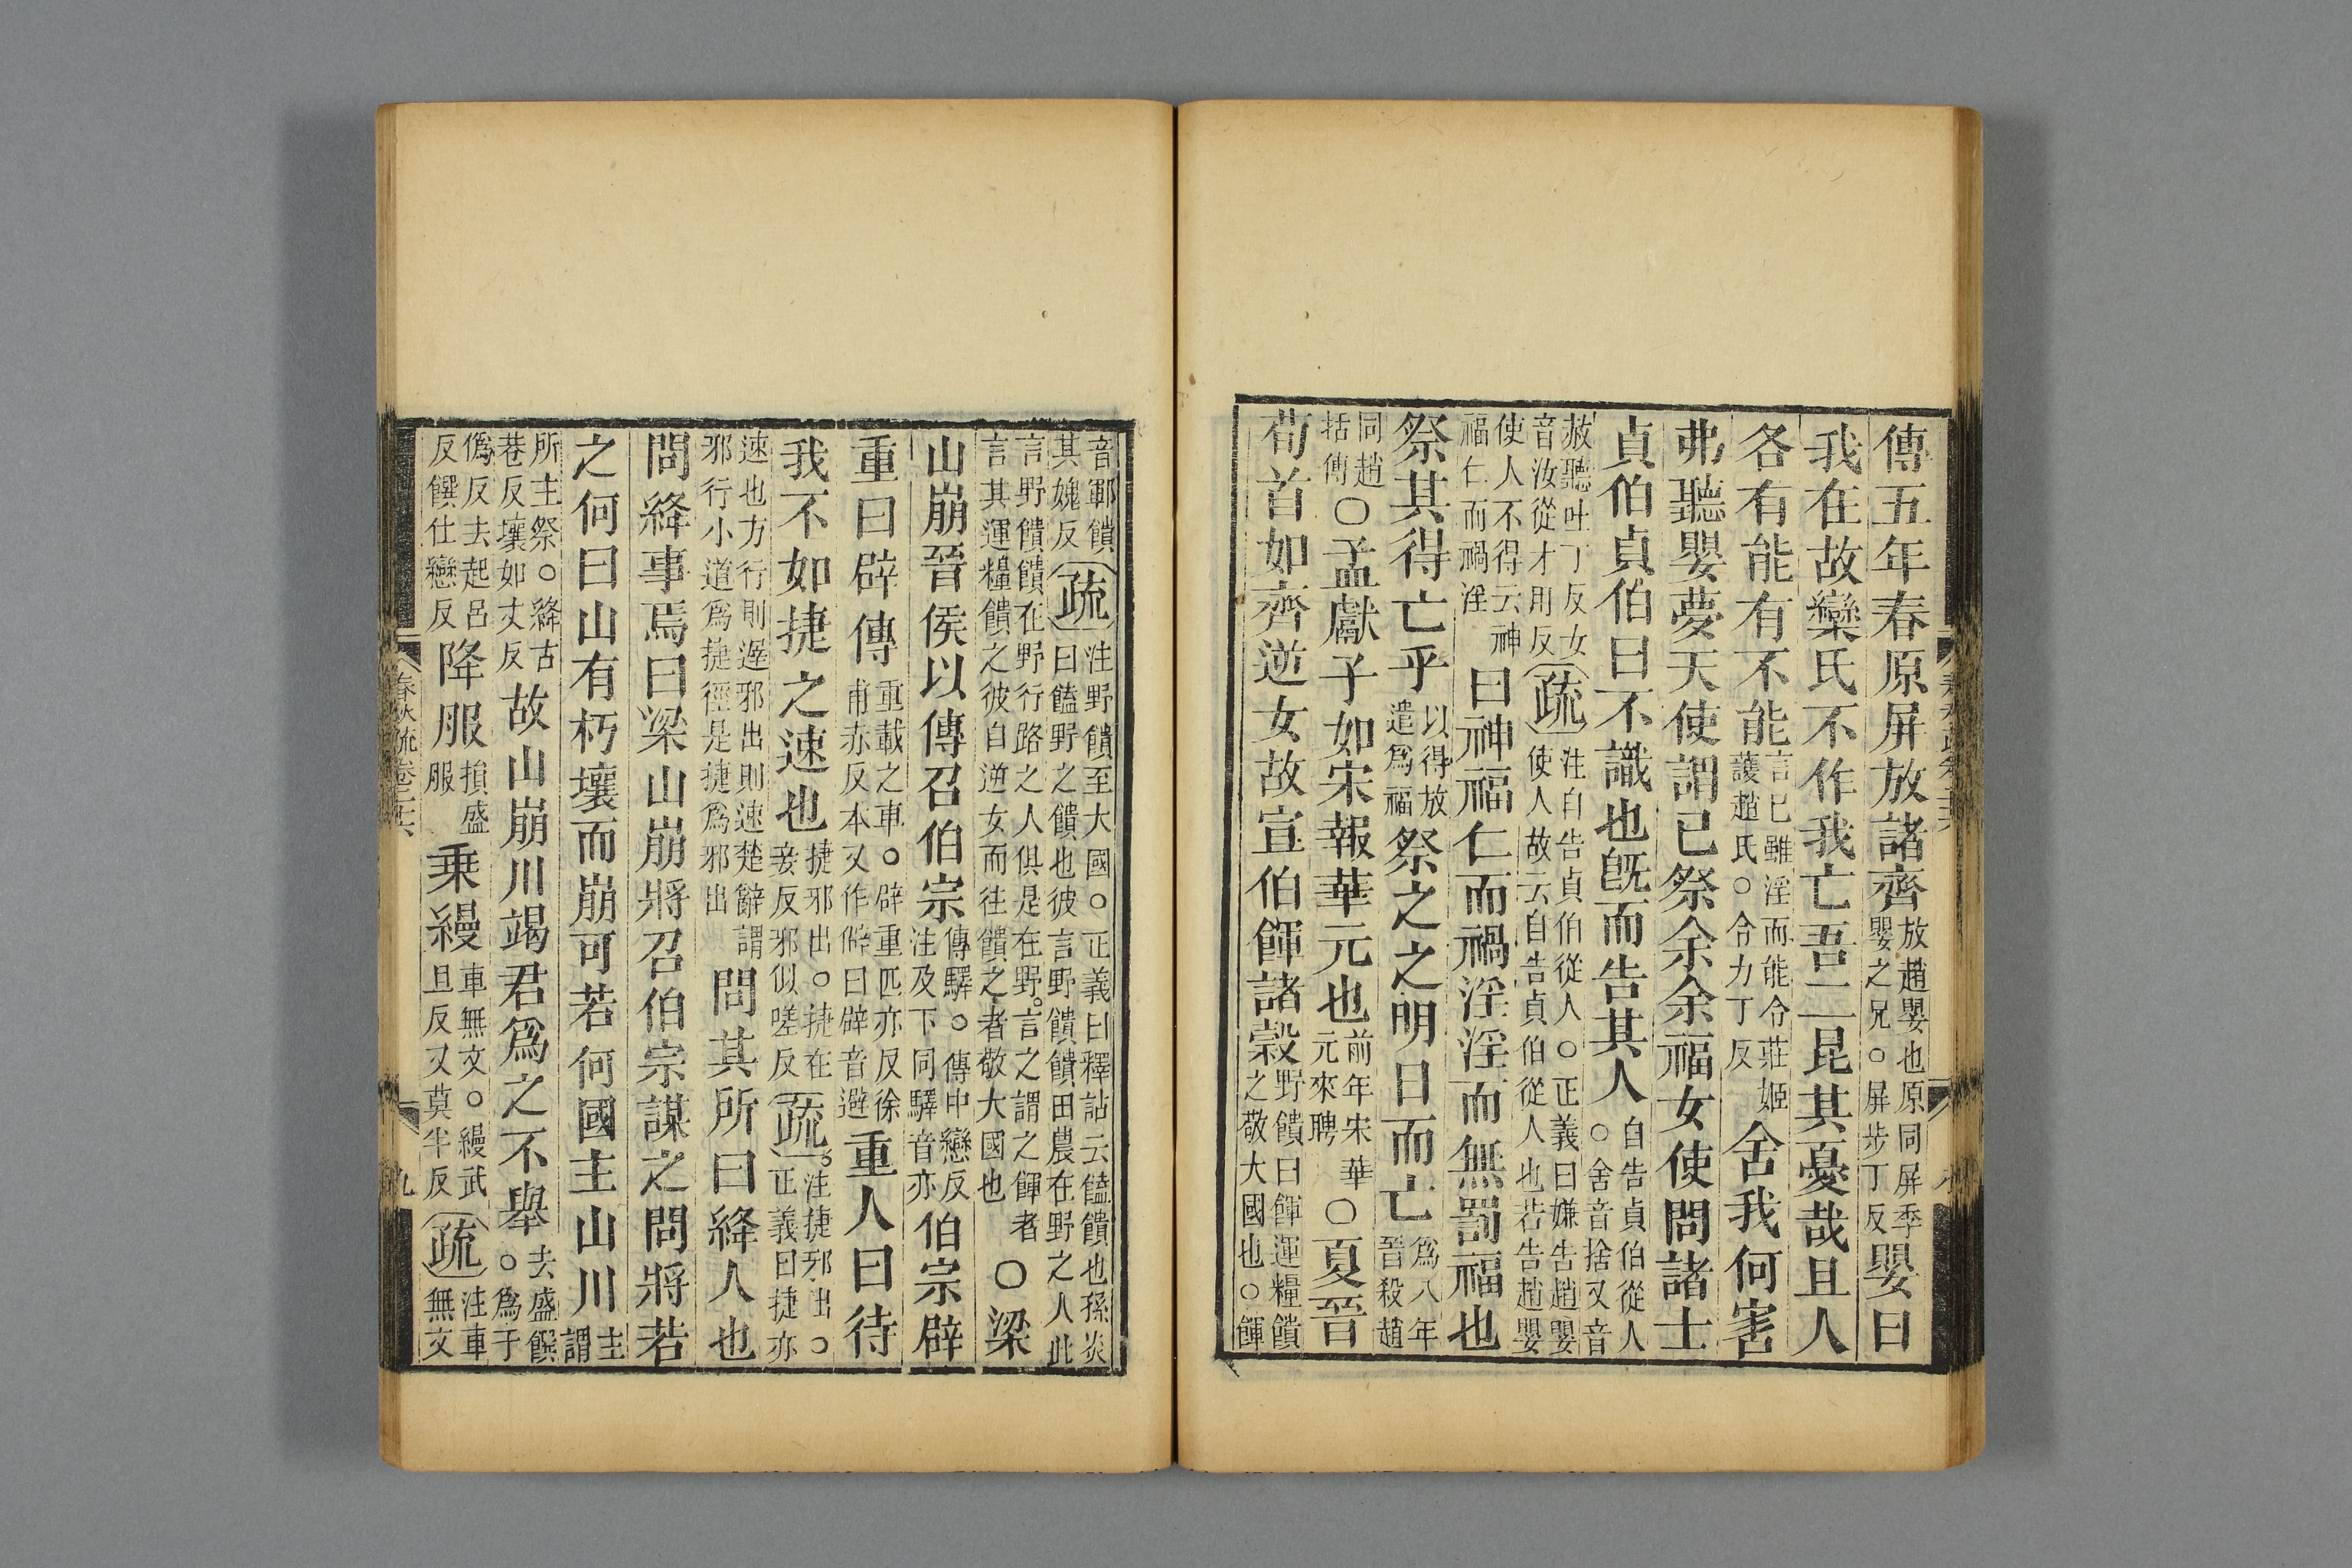 傳五年春原屏放諸齊放趙嬰也原同屏季嬰之兄○屏步丁反嬰曰
我在故欒氏不作我亡吾二昆其憂哉且人
各有能有不能言已雖淫而能令莊姬護趙氏○令力丁反舍我何害
弗聽嬰夢天使謂已祭余余福女使問諸士
貞伯貞伯曰不識也旣而告其人自告貞伯從人○舍音捨又音
赦聽吐丁反女音汝從才則反疏注自告貞伯從人○正義曰嫌告趙嬰使人故云自告貞伯從人也若告趙嬰
使人不得云神福仁而禍淫曰神福仁而禍淫淫而無罰福也
祭其得亡乎以得放遣爲福祭之之明日而亡爲八年晉殺趙
同趙括傳○孟獻子如宋報華元也前年宋華元來聘○夏晉
荀首如齊逆女故宣伯餫諸穀野饋曰餫運糧饋之敬大國也○餫
音鄆饋其媿反疏注野饋至大國○正義曰釋詁云饁饋也孫炎曰饁野之饋也彼言野饋饋田農在野之人此
言野饋饋在野行路之人俱是在野言之謂之餫者言其運糧饋之彼自逆女而往饋之者敬大國也○梁
山崩晉侯以傳召伯宗傳驛○傳中戀反注及下同驛音亦伯宗辟
重曰辟傳重載之車○辟重匹亦反徐甫赤反本又作僻曰辟音避重人曰待
我不如捷之速也捷邪出○捷在妾反邪似嗟反疏注捷邪出○正義曰捷亦
速也方行則遲邪出則速楚辭謂邪行小道爲捷徑是捷爲邪出問其所曰絳人也
問絳事焉曰梁山崩將召伯宗謀之問將若
之何曰山有朽壤而崩可若何國主山川主謂
所主祭○絳古巷反壤如丈反故山崩川竭君爲之不舉去盛饌○爲于
僞反去起呂反饌仕戀反降服損盛服乘縵車無文○縵武旦反又莫半反疏注車無文
春秋疏卷二十六
九